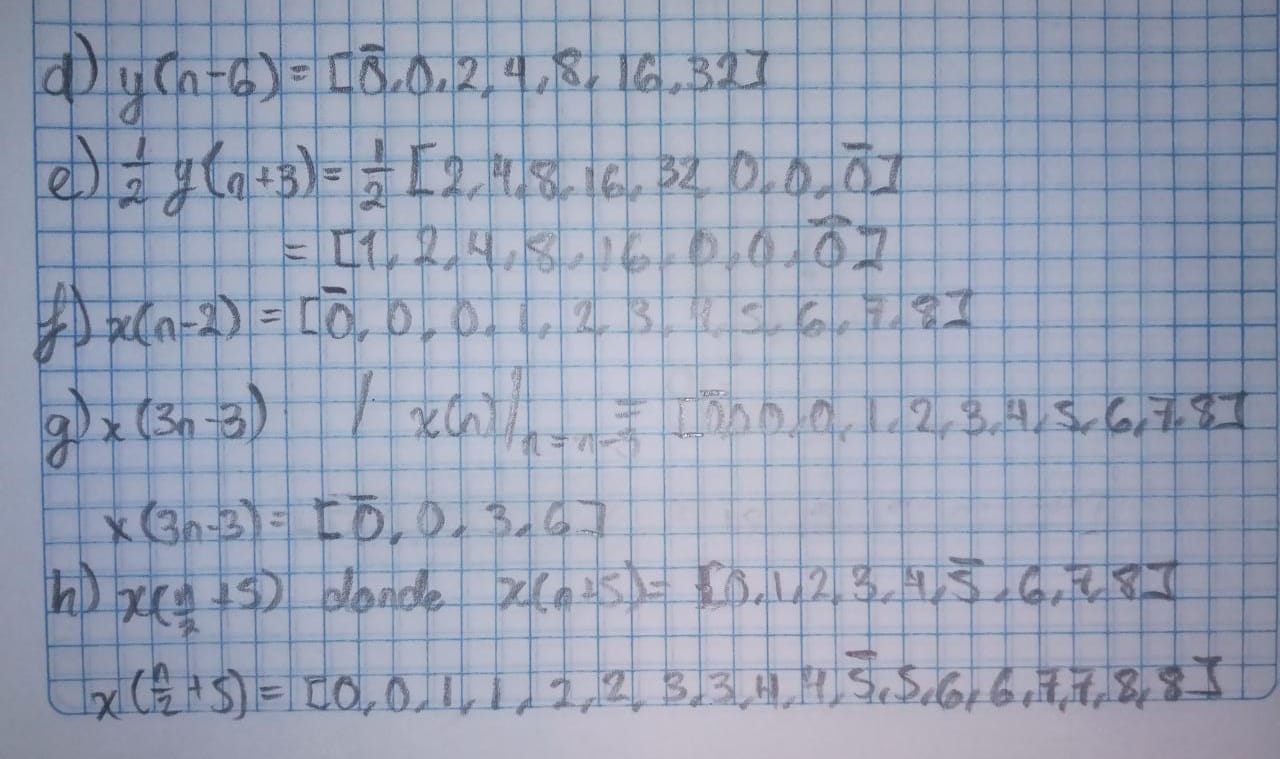 d) y(n-6) = [0̄, 0, 2, 4, 8, 16, 32]
e) 1/2 y(n+3) = 1/2 [2, 4, 8, 16, 32 0, 0, 0̄]
= [1, 2, 4, 8, 16, 0, 0, 0̄]
f) x(n-2) = [0̄, 0, 0, 1, 2, 3, 4, 5, 6, 7, 8]
g) x(3n-3) / x(n)|n=n-3 = [0̄, 0, 0, 0, 1, 2, 3, 4, 5, 6, 7, 8]
x(3n-3) = [0̄, 0, 3, 6]
h) x(n/2 +5) donde x(n+5) = [0, 1, 2, 3, 4, 5̄, 6, 7, 8]
x(n/2 +5) = [0, 0, 1, 1, 2, 2, 3, 3, 4, 4, 5̄, 5, 6, 6, 7, 7, 8, 8]